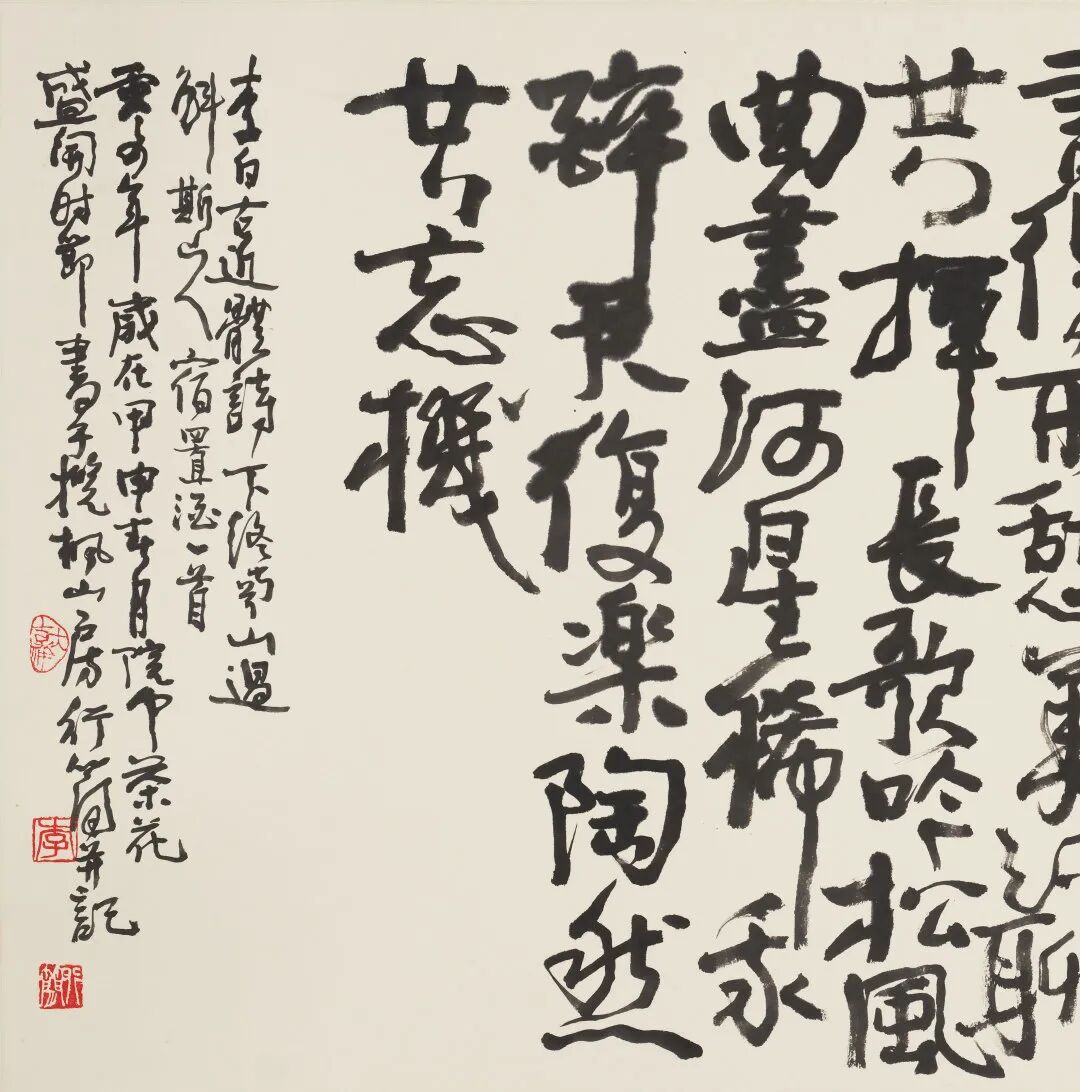 言得所憩美酒聊
共揮長歌吟松風
曲盡河星稀我
醉君復楽陶然
共忘機
李白古近體詩下終南山過
斛斯山人宿置酒一首
零四年歲在甲申春月院中茶花
盛開时節書于攬枫山房行簡并記
李